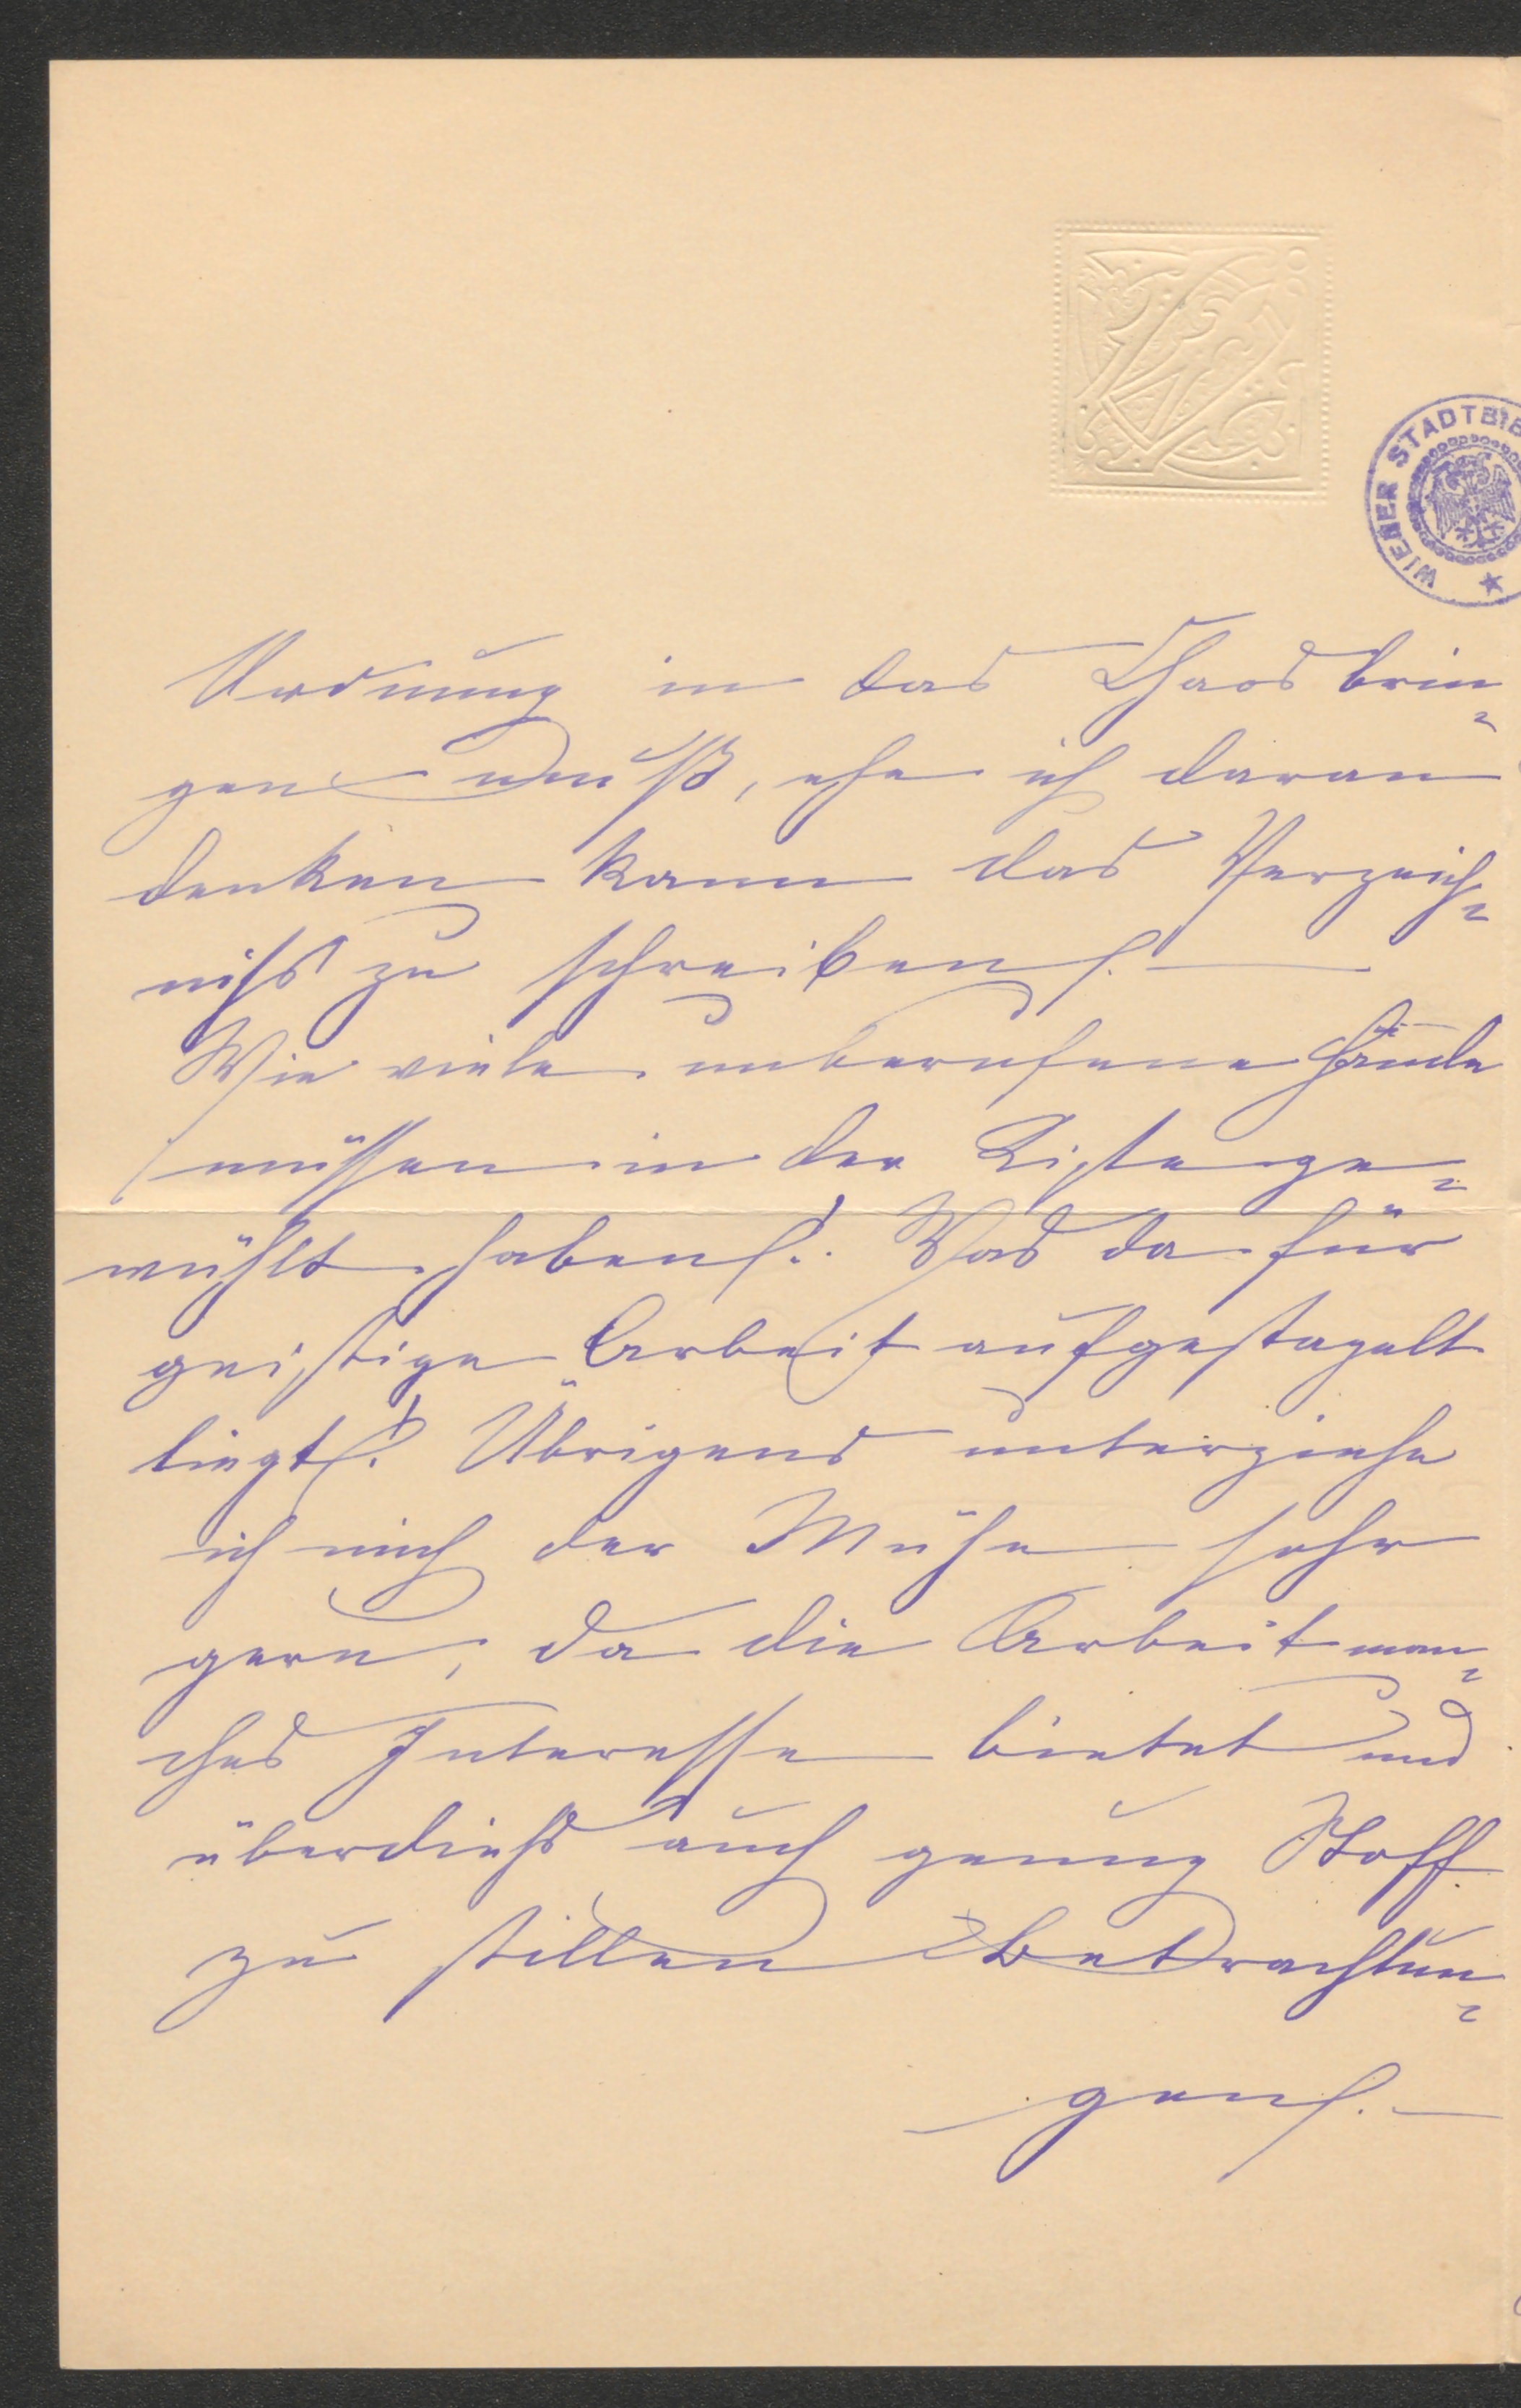 WIENER STADTBIB
Ordnung in das Chaos brin-
gen muß, ehe ich daran
denken kann das Verzeich-
niss zu schreiben. —
Wie viele unberufene Hände
müssen in der Kiste ge-
wühlt haben! Was da für
geistige Arbeit aufgestapelt
liegt! Übrigens unterziehe
ich mich der Mühe sehr
gern, da die Arbeit man-
ches Interesse bietet und
überdieß auch genug Stoff
zu stillen Betrachtun-
gen. —